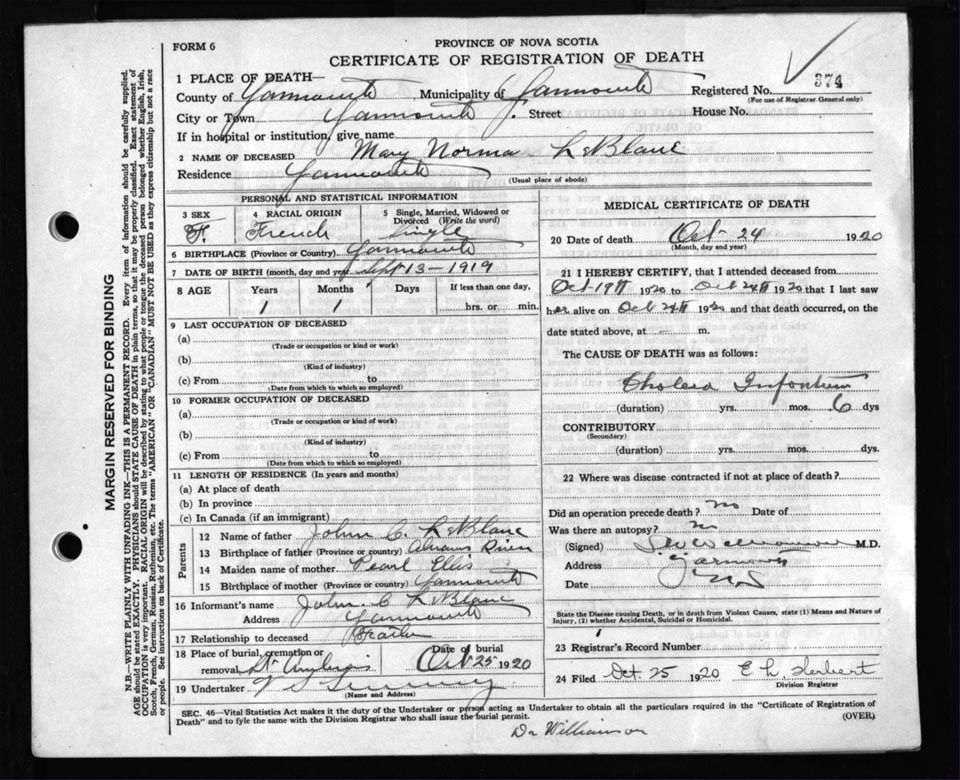 FORM 6
PROVINCE OF NOVA SCOTIA
CERTIFICATE OF REGISTRATION OF DEATH
374
1 PLACE OF DEATH—
County of Yarmouth Municipality of Yarmouth Registered No.
(For use of Registrar General only)
City or Town Yarmouth Street House No.
If in hospital or institution, give name
2 NAME OF DECEASED Mary Norma LeBlanc
Residence Yarmouth
(Usual place of abode)
PERSONAL AND STATISTICAL INFORMATION
3 SEX
F.
4 RACIAL ORIGIN
French
5 Single, Married, Widowed or Divorced (Write the word)
Single
6 BIRTHPLACE (Province or Country) Yarmouth
7 DATE OF BIRTH (month, day and year) Sept 13-1919
8 AGE Years Months Days If less than one day,
1 1 hrs. or min.
9 LAST OCCUPATION OF DECEASED
(a)
(Trade or occupation or kind or work)
(b)
(Kind of industry)
(c) From to
(Date from which to which so employed)
10 FORMER OCCUPATION OF DECEASED
(a)
(Trade or occupation or kind of work)
(b)
(Kind of industry)
(c) From to
(Date from which to which so employed)
11 LENGTH OF RESIDENCE (In years and months)
(a) At place of death
(b) In province
(c) In Canada (if an immigrant)
Parents
12 Name of father John C. LeBlanc
13 Birthplace of father (Province or country) Abrams River
14 Maiden name of mother Pearl Ellis
15 Birthplace of mother (Province or country) Yarmouth
16 Informant's name John C LeBlanc
Address Yarmouth
17 Relationship to deceased Father
18 Place of burial, cremation or removal St Ambrois
Date of burial Oct 25 1920
19 Undertaker
(Name and Address)
MEDICAL CERTIFICATE OF DEATH
20 Date of death Oct 24 1920
(Month, day and year)
21 I HEREBY CERTIFY, that I attended deceased from
Oct 19th 1920 to Oct 24th 1920 that I last saw
her alive on Oct 24th 1920 and that death occurred, on the
date stated above, at — m.
The CAUSE OF DEATH was as follows:
Cholera Infantum
(duration) yrs. mos. 6 dys
CONTRIBUTORY
(Secondary)
(duration) yrs. mos. dys.
22 Where was disease contracted if not at place of death?
Did an operation precede death? no Date of
Was there an autopsy? no
(Signed) M.D.
Address Yarmouth
Date N S
State the Disease causing Death, or in death from Violent Causes, state (1) Means and Nature of
Injury, (2) whether Accidental, Suicidal or Homicidal.
23 Registrar's Record Number
24 Filed Oct. 25 1920 E L Herbert
Division Registrar
SEC. 46—Vital Statistics Act makes it the duty of the Undertaker or person acting as Undertaker to obtain all the particulars required in the "Certificate of Registration of
Death" and to fyle the same with the Division Registrar who shall issue the burial permit.
(OVER)
Dr Williamson
MARGIN RESERVED FOR BINDING
N.B.—WRITE PLAINLY WITH UNFADING INK—THIS IS A PERMANENT RECORD. Every item of information should be carefully supplied.
AGE should be stated EXACTLY. PHYSICIANS should STATE CAUSE OF DEATH in plain terms, so that it may be properly classified. Exact statement of
OCCUPATION is very important. RACIAL ORIGIN will be described by stating to what people or tongue the deceased person belonged whether English, Irish,
Scotch, French, German, Russian, Ruthenian, etc. The terms "AMERICAN" OR "CANADIAN" MUST NOT BE USED as they express citizenship but not a race
or people. See instructions on back of Certificate.